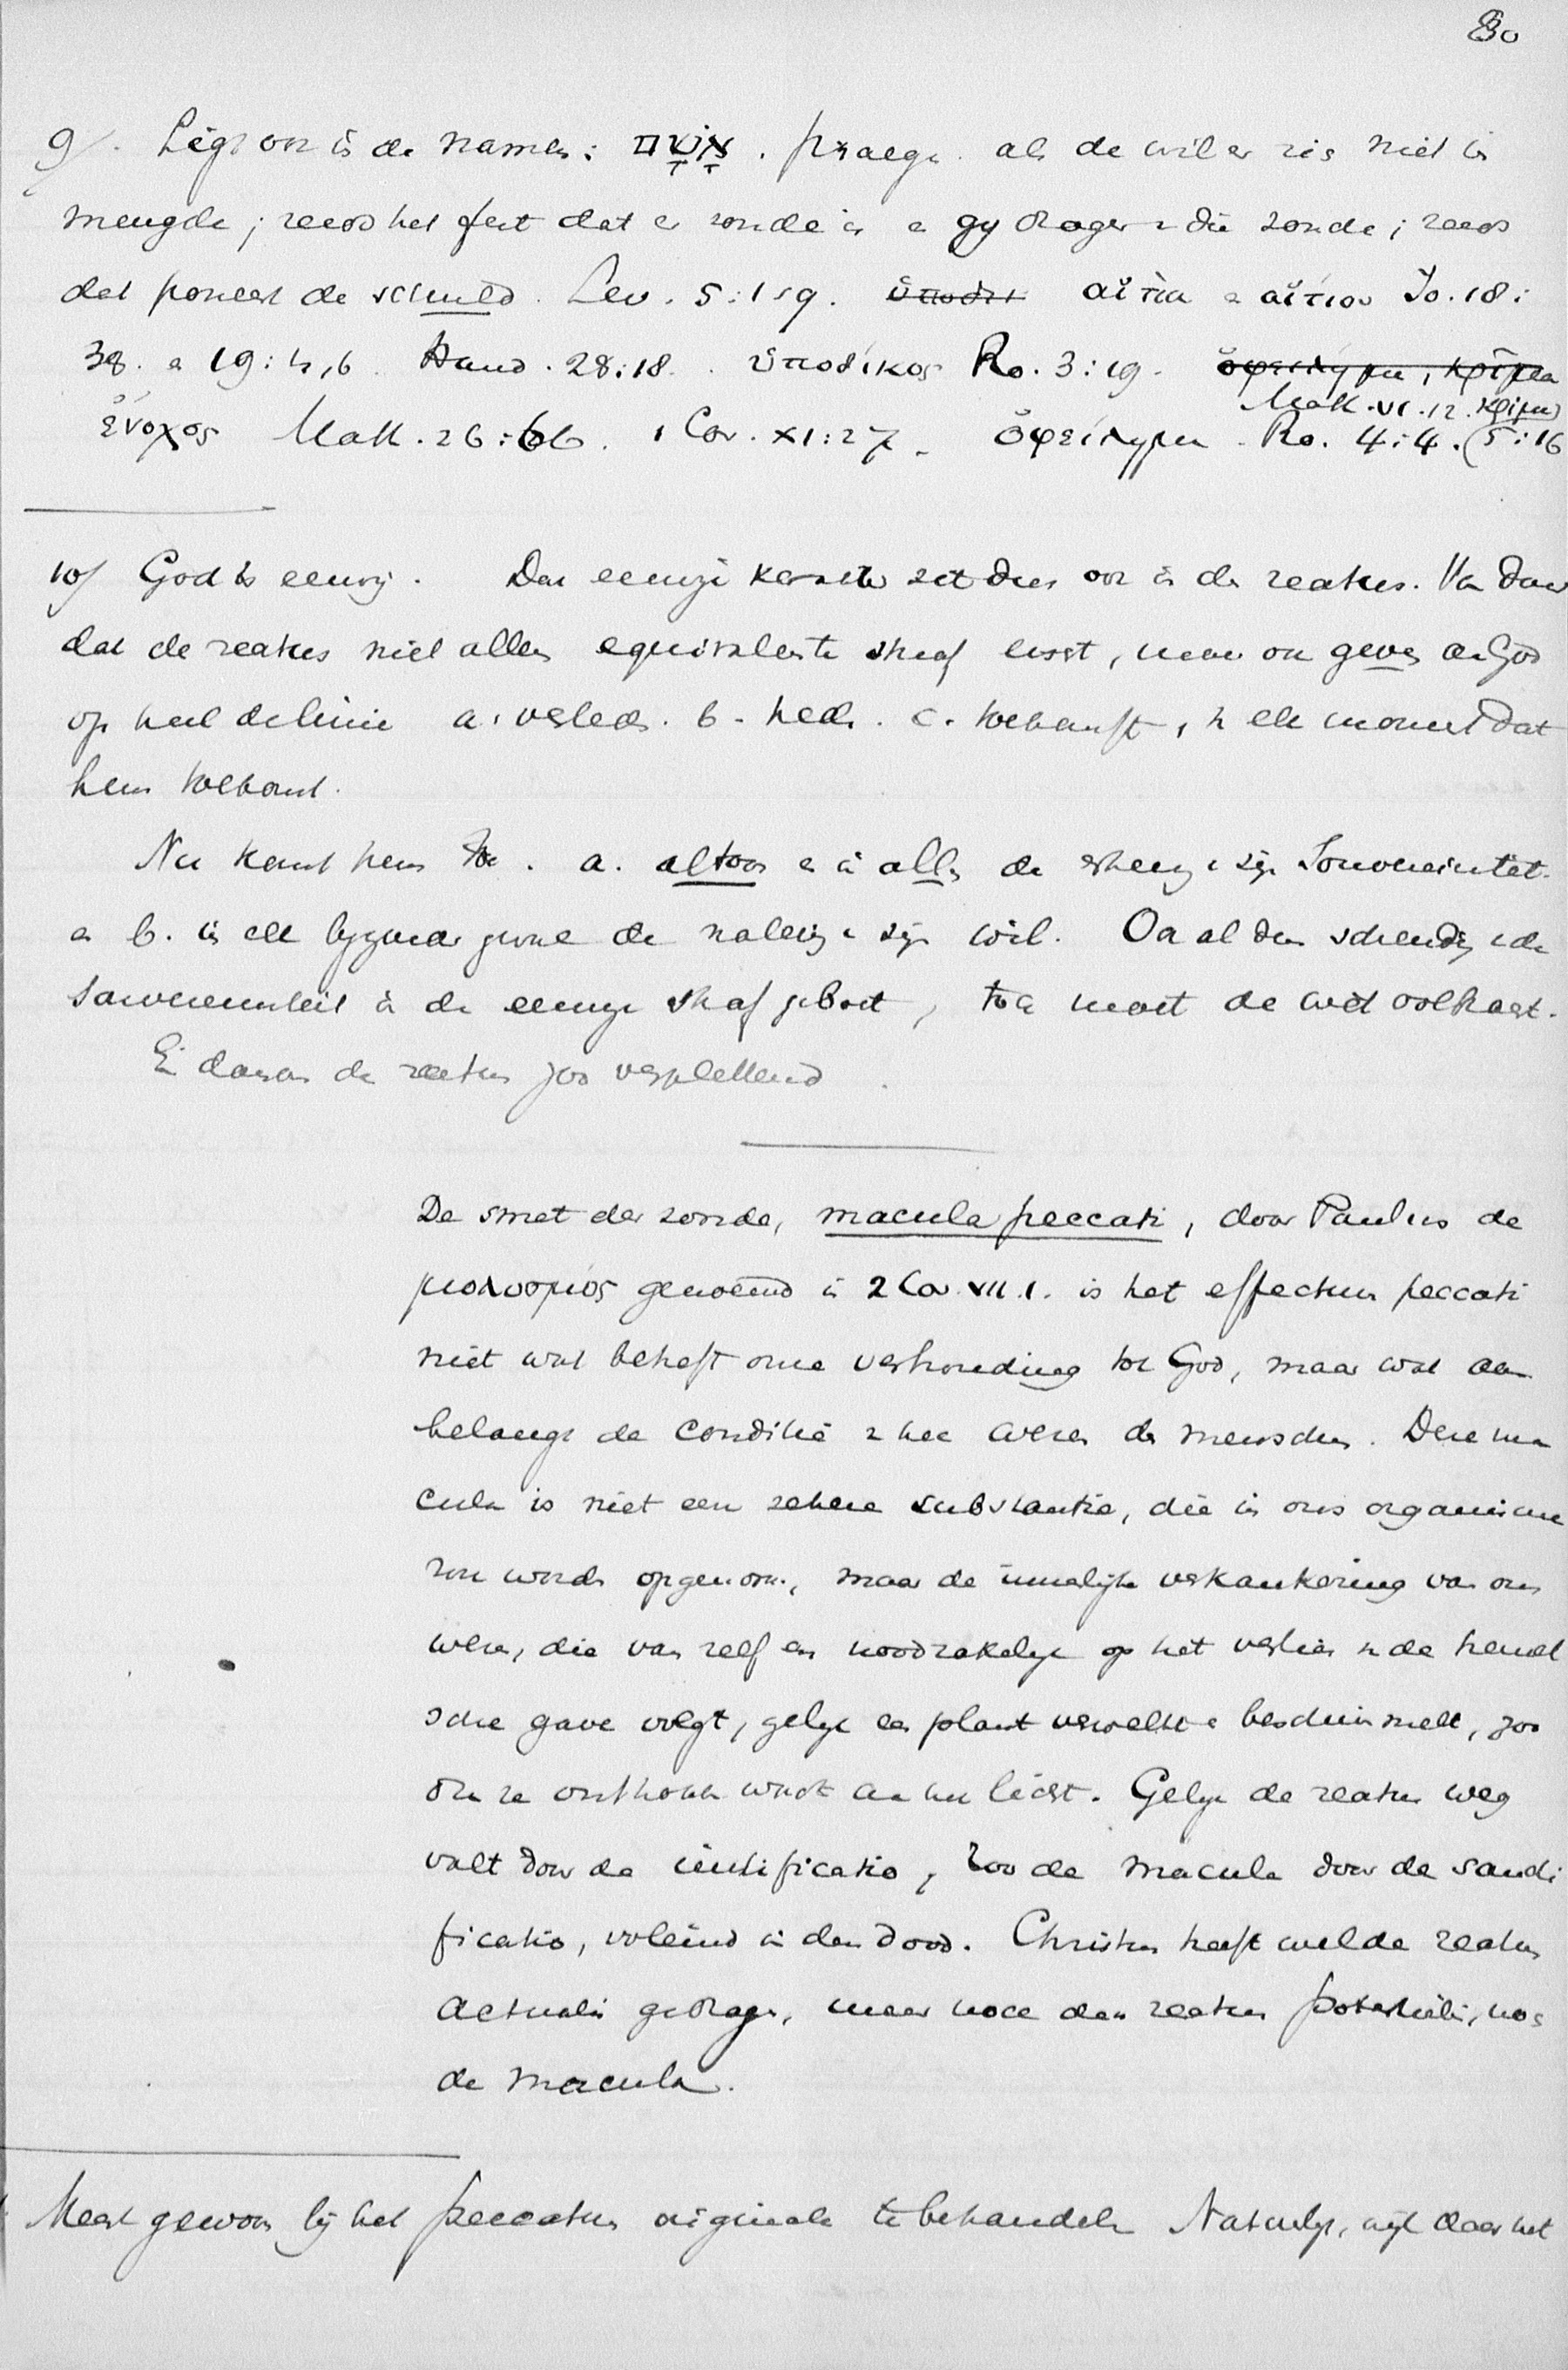 80
9/. Ligt ook in de namen: אָשָׁם. praegn. als de wil er zig niet in
mengde; reeds het feit dat er zonde is en gy drager v die zonde; reeds
dat poneert de schuld. Lev. 5:1 sq. ὑποδι αἰτία en αἴτιον Jo. 18:
38. en 19:4,6. Hand. 28:18. ὑπόδικος Ro. 3:19. ὀφείλημα, κρῖμα
Matt. VI. 12. κρῖμα
ἔνοχος Matt. 26:66. 1 Cor. XI:27. ὀφείλημα. Ro. 4:4. (5:16
10/ God is eeuwig. Dat eeuwige karakter zit dus ook in de reatus. Van daar
dat de reatus niet alleen equivalente straf eischt, maar ook geven aan God
op heel de linie a. verleden. b. heden. c. toekomst, in elk moment dat
hem toekomt.
Nu komt hem toe. a. altoos en in alles de erkenning v zijn Souvereiniteit.
en b. in elk bijzonder geval de naleving v zijn wil. Ook al den schending v de
souvereiniteit in de eeuwige straf geboet, toch moet de wet volbragt.
En daarom de reatus zoo verpletterend.
De smet der zonde, macula peccati, door Paulus de
μολυσμός genoemd in 2 Cor. VII.1. is het effectum peccati
niet wat betreft onze verhouding tot God, maar wat aan
belangt de conditie v het wezen des menschen. Deze ma
cula is niet een zekere substantie, die in ons organisme
zou worden opgenom., maar de innerlijke verkankering van ons
wezen, die van zelf en noodzakelijk op het verlies v de hemel
sche gave volgt, gelijk een plant verwelkt en beschimmelt, zoo
dra ze onttrokken wordt aan het licht. Gelijk de reatus weg
valt door de iustificatio, zoo de macula door de sancti
ficatio, voleind in den dood. Christus heeft wel de reatus
actualis gedragen, maar noch den reatus potentialis, noch
de macula.
Meest gewoon bij het peccatum originale te behandelen Natuurlijk, wijl daar het